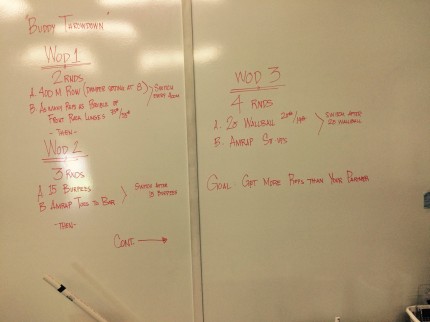 "Buddy Throwdown"
WOD 1
2 RNDS
A. 400 M ROW (DAMPER SETTING AT 5)
B. AS MANY REPS AS POSSIBLE OF
FRONT RACK LUNGES
SWITCH
EVERY 400M
- THEN -
WOD 2
3 RNDS
A. 15 BURPEES
B. AMRAP TOES TO BAR
SWITCH AFTER
15 BURPEES
- THEN -
CONT. →
WOD 3
4 RNDS
A. 20 WALLBALL 20#/14#
B. AMRAP
SWITCH AFTER
20 WALLBALL
GOAL GET MORE REPS THAN YOUR PARTNER